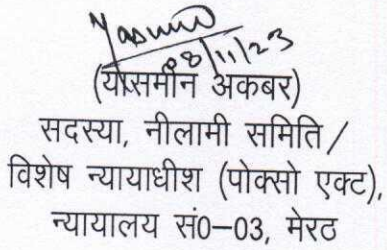 Yasmin
08/11/23
(यासमीन अकबर)
सदस्या, नीलामी समिति /
विशेष न्यायाधीश (पोक्सो एक्ट),
न्यायालय सं0-03, मेरठ